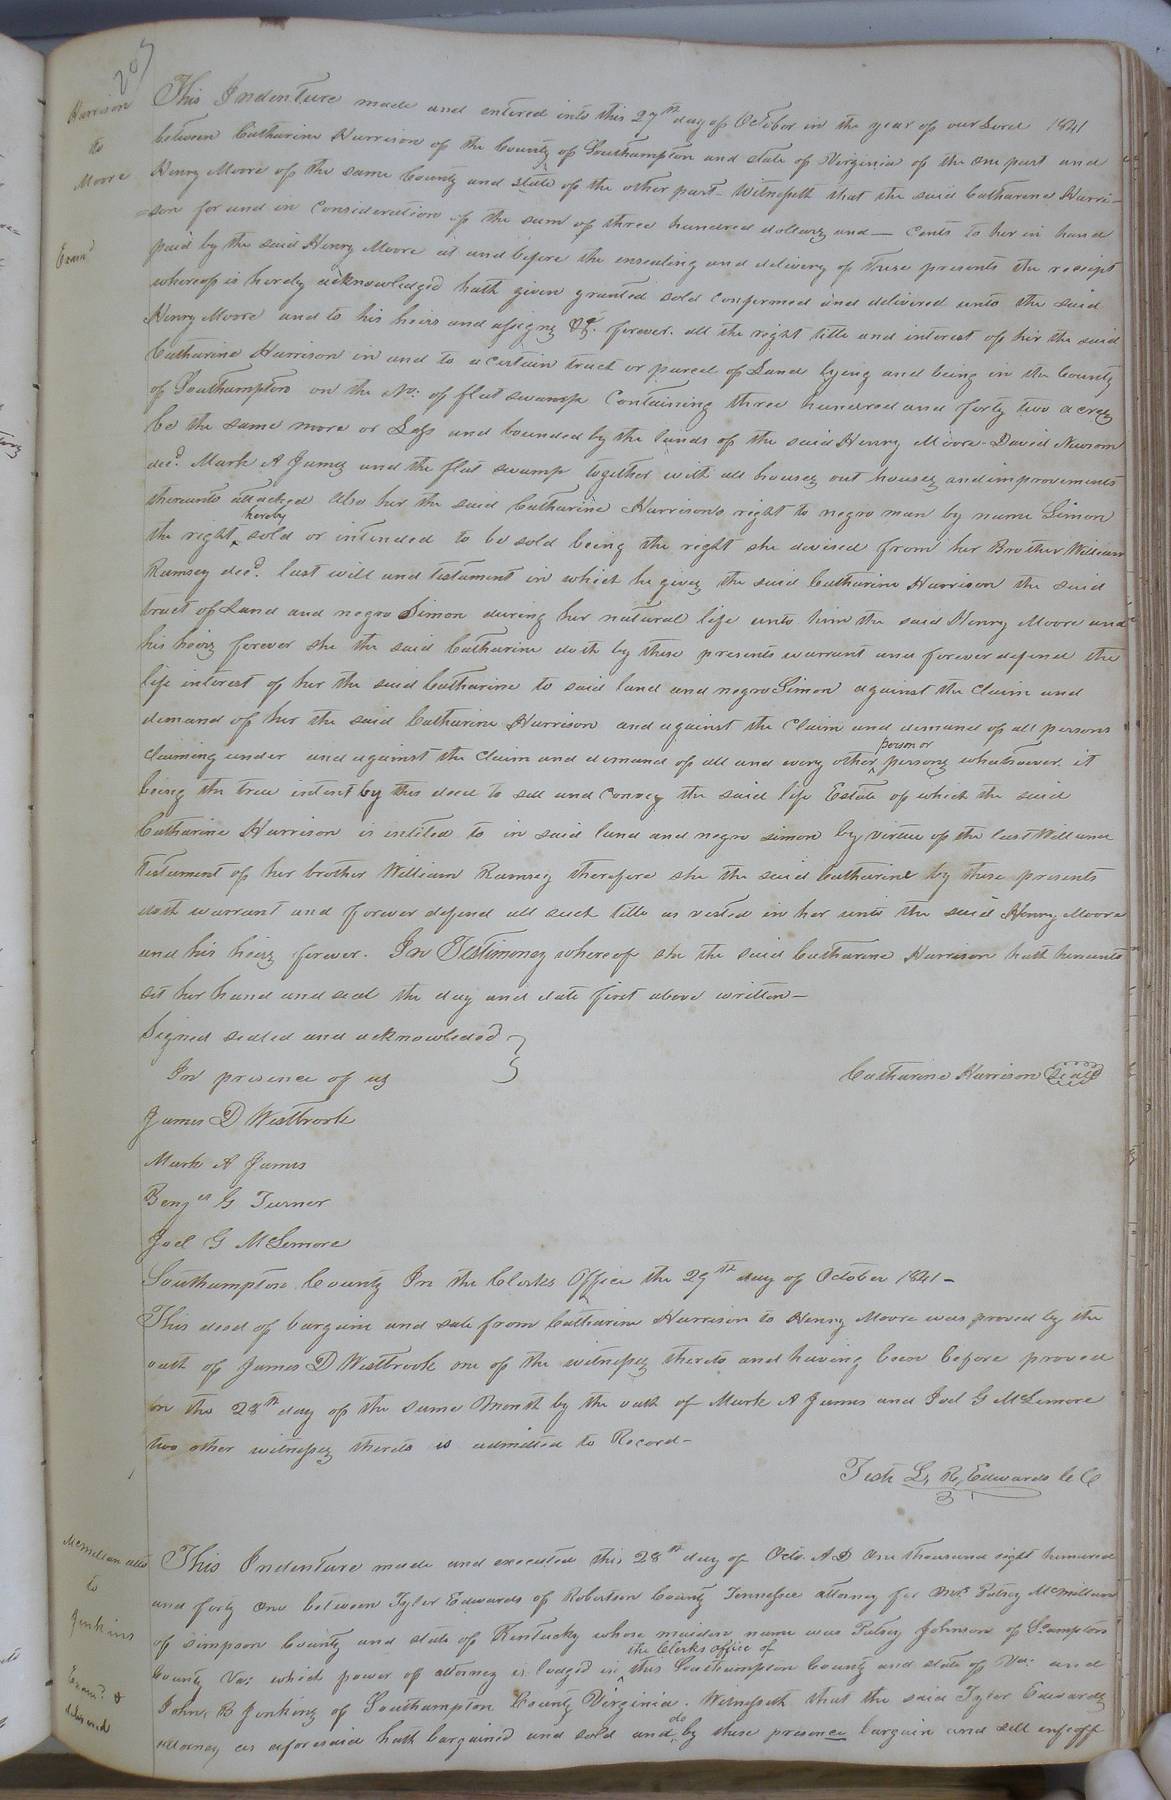 207
Harrison
to
Moore
Exam.d
This Indenture made and entered into this 27th day of October in the year of our Lord 1841
between Catharine Harrison of the County of Southampton and State of Virginia of the one part and
Henry Moore of the same County and State of the other part - Witnesseth that the said Catharine Harri-
=son for and in consideration of the sum of three hundred dollars and — cents to her in hand
paid by the said Henry Moore at and before the ensealing and delivery of these presents the receipt
whereof is hereby acknowledged hath given granted sold confirmed and delivered unto the said
Henry Moore and to his heirs and assigns &c. forever. all the right title and interest of her the said
Catharine Harrison in and to a certain tract or parcel of Land lying and being in the County
of Southampton on the No: of flat swamp Containing three hundred and forty two acres
be the same more or Less and bounded by the lands of the said Henry Moore - David Newsom
decd. Mark A James and the flat swamp together with all houses out houses and improvements
thereunto attached also her the said Catharine Harrisons right to negro man by name Simon
the right hereby sold or intended to be sold being the right she devised from her Brother William
Ramsey decd. last will and testament in which he gives the said Catharine Harrison the said
tract of Land and negro Simon during her natural life unto him the said Henry Moore and
his heirs forever she the said Catharine doth by these presents warrant and forever defend the
life interest of her the said Catharine to said land and negro Simon against the claim and
demand of her the said Catharine Harrison and against the claim and demand of all persons
claiming under and against the claim and demand of all and every other person or persons whatsoever. it
being the true intent by this deed to sell and convey the said life Estate of which the said
Catharine Harrison is intitled to in said land and negro simon by virtue of the last Will and
testament of her brother William Ramsey therefore she the said Catharine by these presents
doth warrant and forever defend all such title as vested in her unto the said Henry Moore
and his heirs forever. In Testimony whereof she the said Catharine Harrison hath hereunto
set her hand and seal the day and date first above written —
Signed sealed and acknowledged }
In presence of us
Catharine Harrison Seal
James D Westbrook
Mark A James
Benjn G Turner
Joel G McLemore
Southampton County In the Clerks Office the 29th day of October 1841 -
This deed of bargain and sale from Catharine Harrison to Henry Moore was proved by the
oath of James D Westbrook one of the witnesses thereto and having been before proved
on the 28th day of the same Month by the oath of Mark A James and Joel G McLemore
two other witnesses thereto is admitted to Record -
Teste L. R. Edwards C C
McMillan atto
to
Jenkins
Exam.d &
delivered
This Indenture made and executed this 28th day of Octo. A.D One thousand eight hundred
and forty One between Tyler Edwards of Robertson County Tennessee attorney for Mrs Patsey McMillan
of Simpson County and state of Kentucky whose maiden name was Patsey Johnson of So.ampton
County Va: which power of attorney is lodged in the Clerks office of this Southampton County and state of Va: and
John, B Jenkins of Southampton County Virginia. Witnesseth that the said Tyler Edwards
attorney as aforesaid hath bargained and sold and do by these presence bargain and sell enfeoff